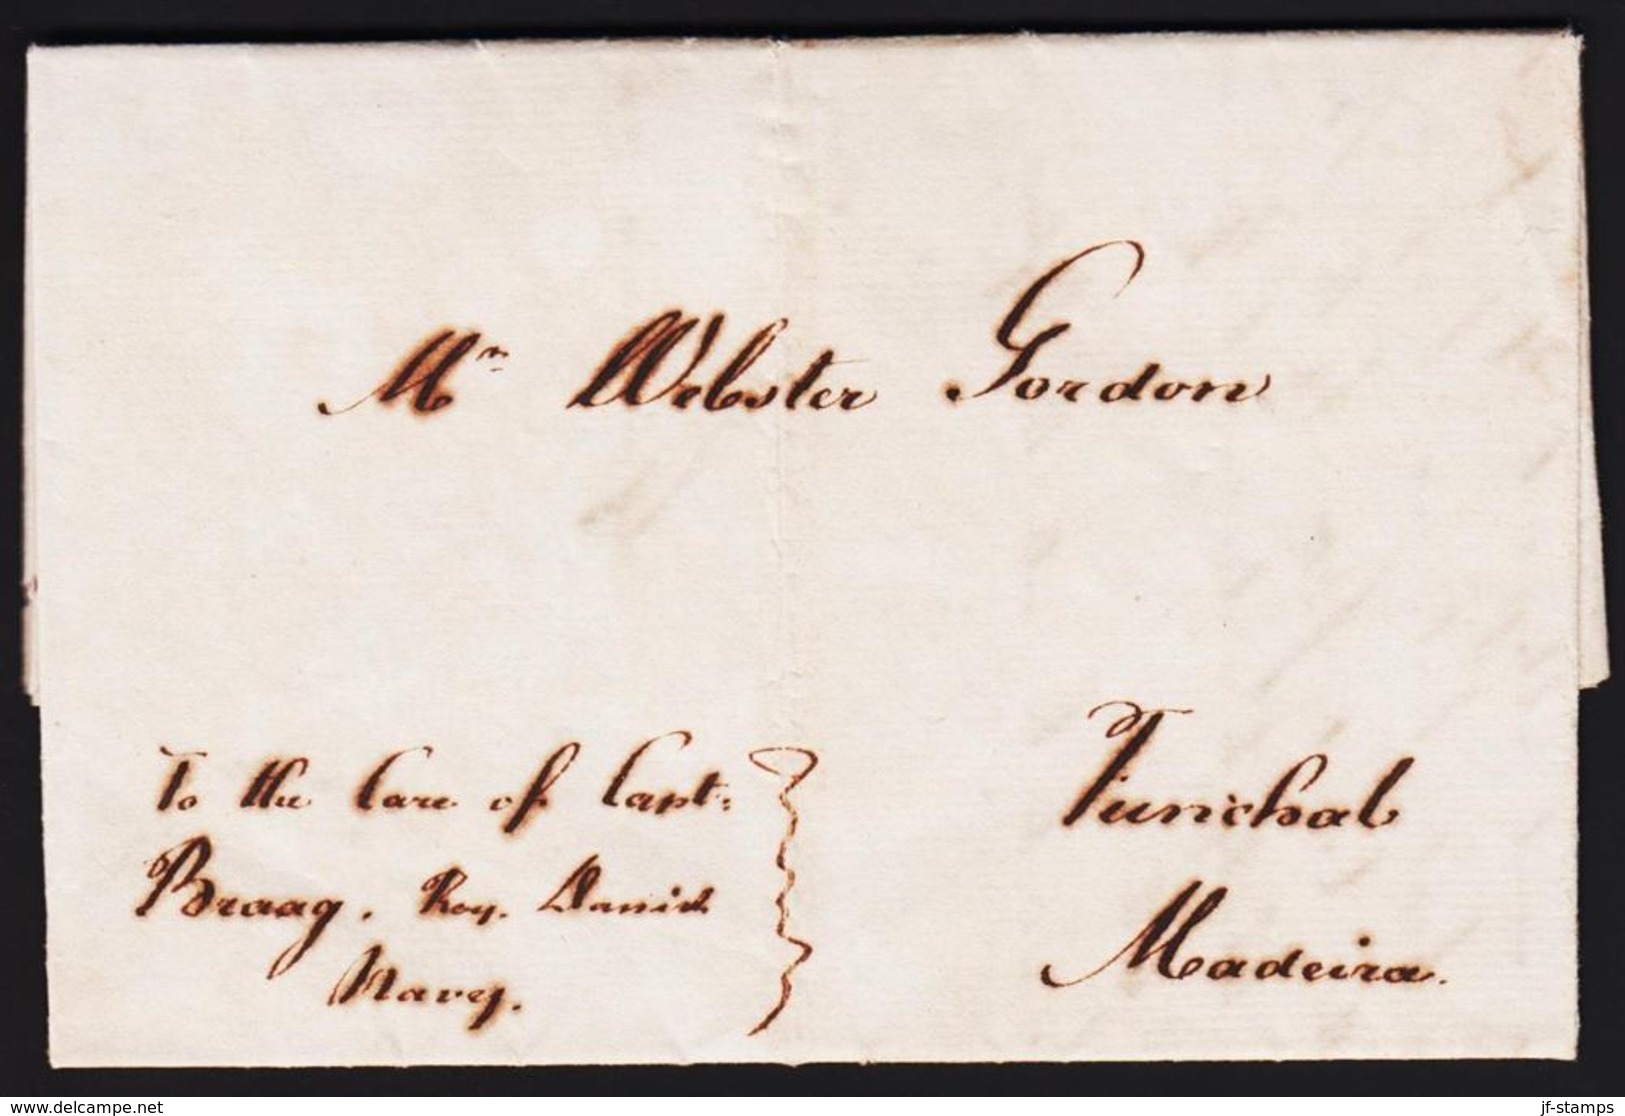 Mr Webster Gordon
To the Care of Capt:
Braag. Roy. Danish
Navy.
Funchal
Madeira.
www.delcampe.net
jf-stamps